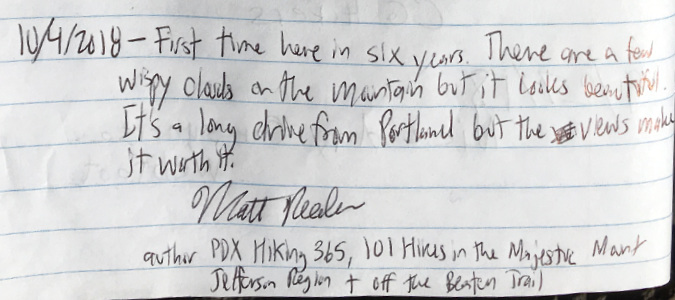 10/4/2018 – First time here in six years. There are a few
wispy clouds on the mountain but it looks beautiful.
It's a long drive from Portland but the views make
it worth it.
Matt Reeder
author PDX Hiking 365, 101 Hikes in the Majestic Mount
Jefferson Region + Off the Beaten Trail